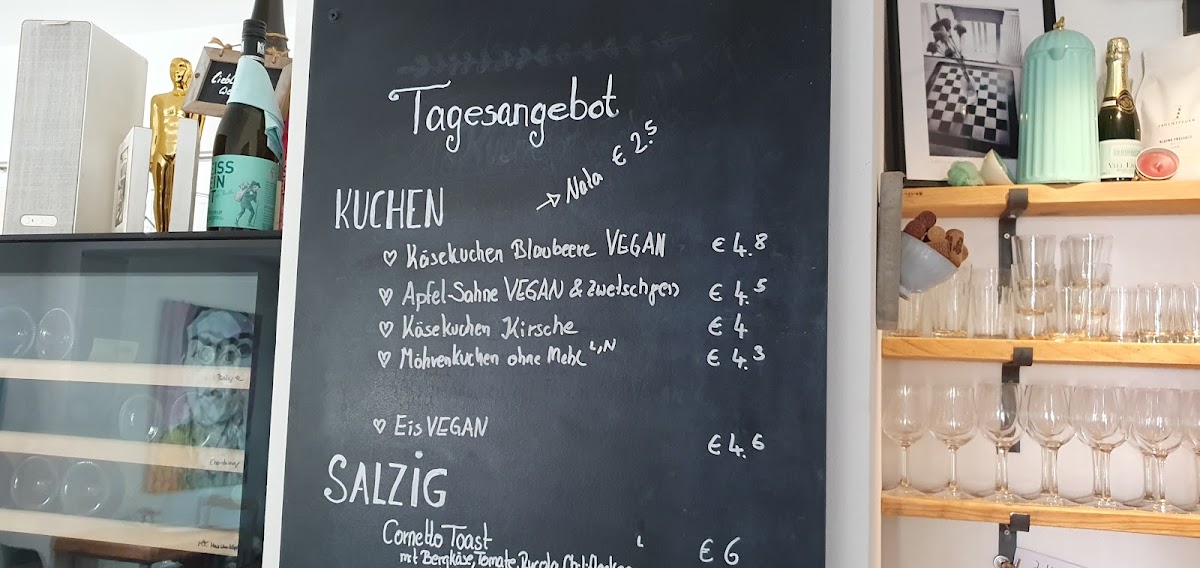 Tagesangebot
Nata € 2.5
KUCHEN
Käsekuchen Blaubeere VEGAN € 4.8
Apfel-Sahne VEGAN & Zwetschgen € 4.5
Käsekuchen Kirsche € 4
Möhrenkuchen ohne Mehl L,N € 4.3
Eis VEGAN € 4.6
SALZIG
Cornetto Toast L € 6
mit Bergkäse, Tomate, Rucola